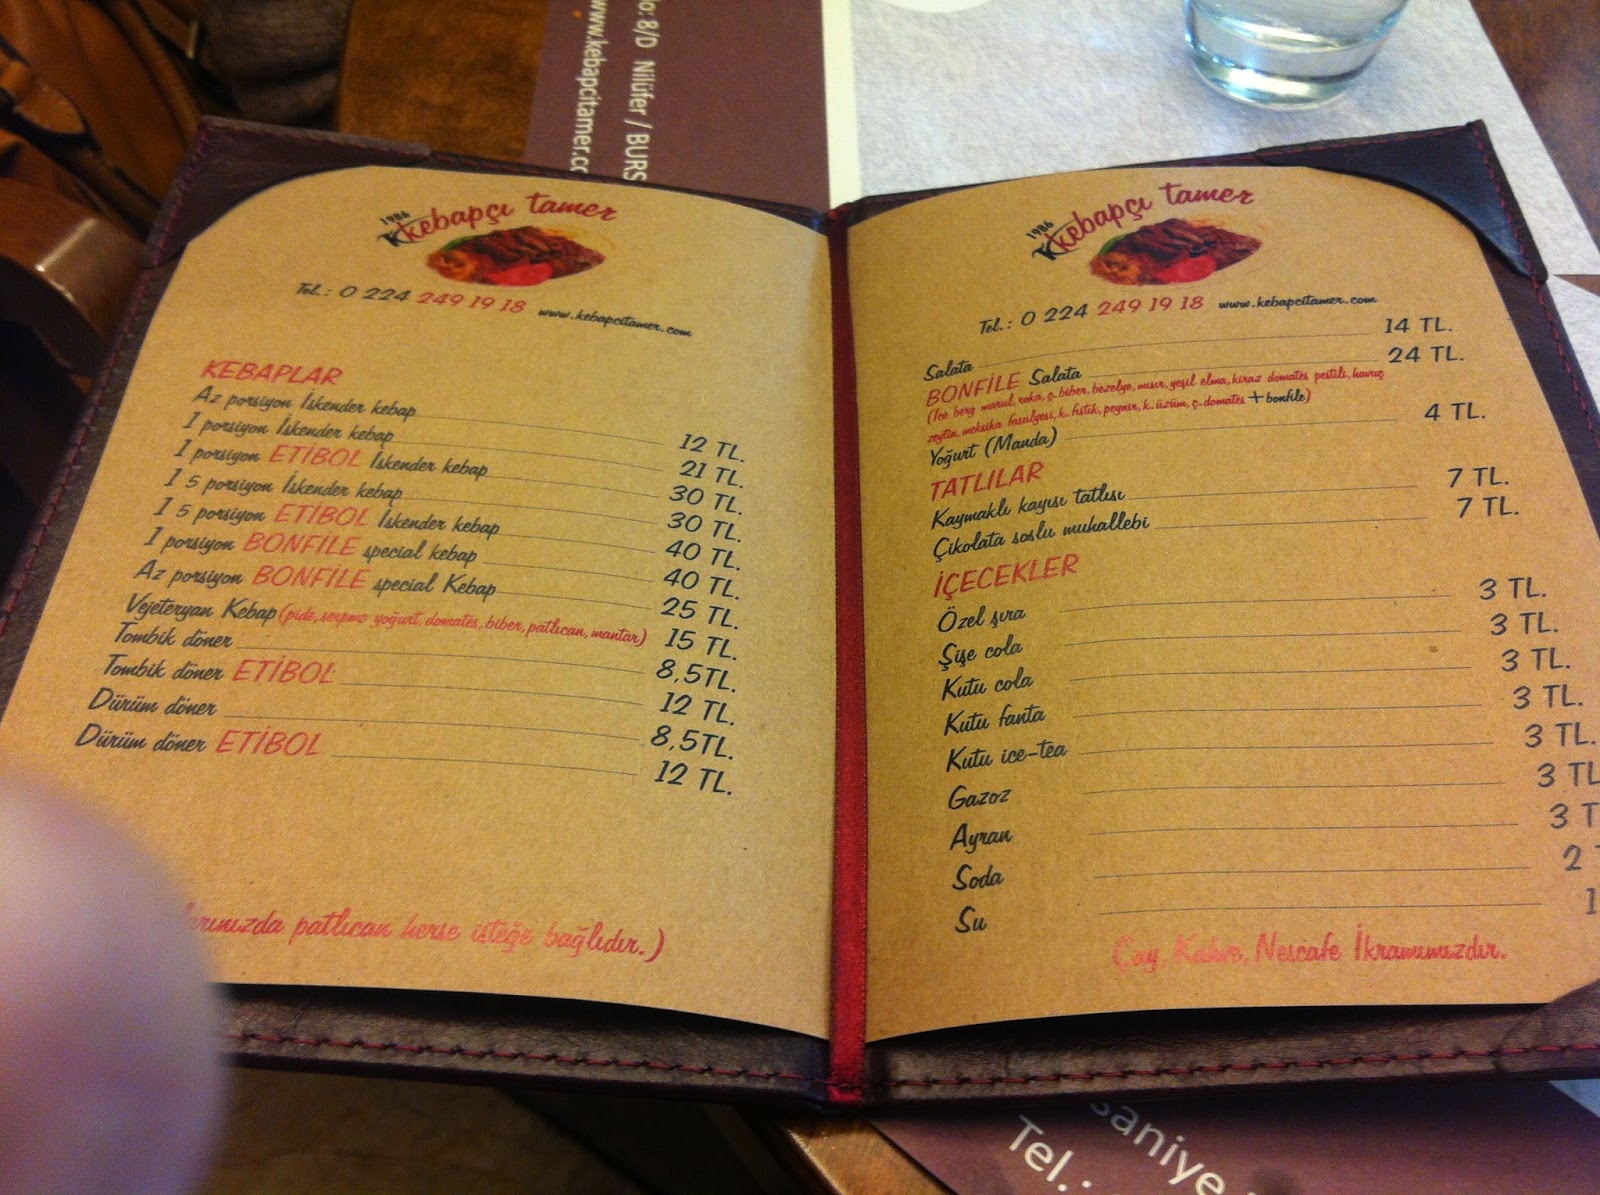 No: 8/D Nilüfer / BURS
www.kebapcitamer.co
1986
Kebapçı tamer
Tel.: 0 224 249 19 18 www.kebapcitamer.com
KEBAPLAR
Az porsiyon İskender kebap 12 TL.
1 porsiyon İskender kebap 21 TL.
1 porsiyon ETİBOL İskender kebap 30 TL.
1 5 porsiyon İskender kebap 30 TL.
1 5 porsiyon ETİBOL İskender kebap 40 TL.
1 porsiyon BONFİLE special kebap 40 TL.
Az porsiyon BONFİLE special Kebap 25 TL.
Vejeteryan Kebap (pide, serpme yoğurt, domates, biber, patlıcan, mantar) 15 TL.
Tombik döner 8,5TL.
Tombik döner ETİBOL 12 TL.
Dürüm döner 8,5TL.
Dürüm döner ETİBOL 12 TL.
larımızda patlıcan herse isteğe bağlıdır.)
1986
Kebapçı tamer
Tel.: 0 224 249 19 18 www.kebapcitamer.com
Salata 14 TL.
BONFİLE Salata 24 TL.
(Ice berg marul, roka, ç.biber, bezelye, mısır, yeşil elma, kiraz domates pestili, havuç
zeytin, meksika fasulyesi, k. fıstık, peynir, k. üzüm, ç.domates + bonfile)
Yoğurt (Manda) 4 TL.
TATLILAR
Kaymaklı kayısı tatlısı 7 TL.
Çikolata soslu muhallebi 7 TL.
İÇECEKLER
Özel şıra 3 TL.
Şişe cola 3 TL.
Kutu cola 3 TL.
Kutu fanta 3 TL.
Kutu ice-tea 3 TL.
Gazoz 3 TL
Ayran 3 T
Soda 2 T
Su 1
Çay, Kahve, Nescafe İkramımızdır.
saniye
Tel.: